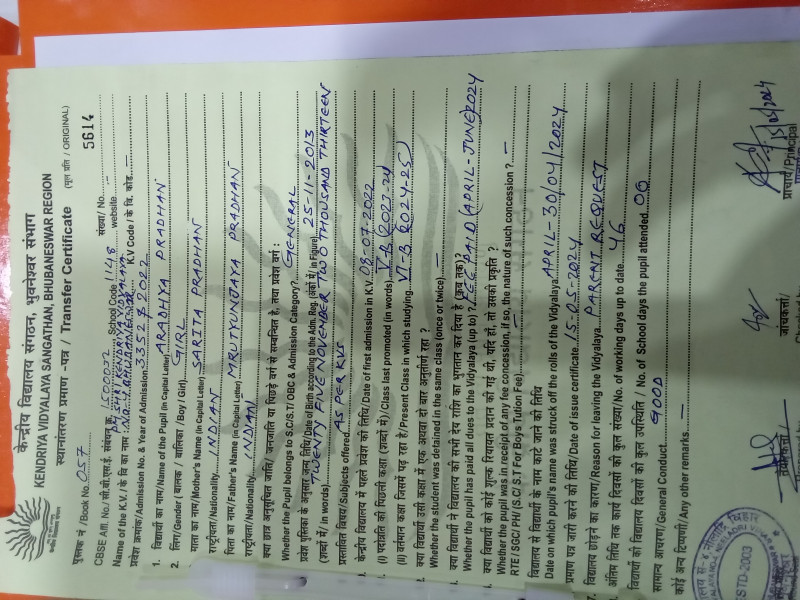 केन्द्रीय विद्यालय संगठन, भुवनेश्वर संभाग
KENDRIYA VIDYALAYA SANGATHAN, BHUBANESWAR REGION
स्थानांतरण प्रमाण -पत्र / Transfer Certificate (मूल प्रति / ORIGINAL)
पुस्तक नं /Book No. 057 संख्या/ No. 5614
CBSE Affl. No./ सी.बी.एस.ई. संबंधन क्र. 1500032 School Code 1148 website :-
Name of the K.V. /के वि का नाम PM SHRI KENDRIYA VIDYALAYA NO-4 BHUBANESWAR K.V Code / के वि. कोड. —
प्रवेश क्रमांक/Admission No. & Year of Admission 3352 & 2022
1. विद्यार्थी का नाम/Name of the Pupil (in Capital Letter) ARADHYA PRADHAN
2. लिंग/Gender (बालक / बालिका /Boy / Girl) GIRL
माता का नाम/Mother's Name (in Capital Letter) SARITA PRADHAN
राष्ट्रीयता/Nationality INDIAN
पिता का नाम/Father's Name (in Capital Letter) MRUTYUNJAYA PRADHAN
राष्ट्रीयता/Nationality INDIAN
क्या छात्र अनुसूचित जाति/ जनजाति या पिछड़े वर्ग से सम्बन्धित है, तथा प्रवेश वर्ग :
Whether the Pupil belongs to S.C/S.T/ OBC & Admission Category? GENERAL
प्रवेश पुस्तिका के अनुसार जन्म तिथि/Date of Birth according to the Adm. Reg. (अंकों में/ in Figure) 25-11-2013
(शब्दों में / in words) TWENTY FIVE NOVEMBER TWO THOUSAND THIRTEEN
प्रस्तावित विषय/Subjects offered AS PER KVS
केन्द्रीय विद्यालय में पहले प्रवेश की तिथि/Date of first admission in K.V. 08-07-2022
(i) पदोन्नति की पिछली कक्षा (शब्दों में)/Class last promoted (in words) V-B (2023-24)
(ii) वर्तमान कक्षा जिसमें पढ़ रहा है/Present Class in which studying VI-B (2024-25)
क्या विद्यार्थी उसी कक्षा में एक अथवा दो बार अनुत्तीर्ण रहा ?
Whether the student was detained in the same class (once or twice) —
क्या विद्यार्थी ने विद्यालय की सभी देय राशि का भुगतान कर दिया है (कब तक)?
Whether the pupil has paid all dues to the Vidyalaya (up to) ? FEE PAID (APRIL-JUNE) 2024
क्या विद्यार्थी को कोई शुल्क रियायत प्रदान की गई थी, यदि हाँ, तो उसकी प्रकृति ?
Whether the pupil was in receipt of any fee concession, if so, the nature of such concession ? —
RTE / SGC/ PH/ (S.C/ S.T For Boys Tution Fee) —
विद्यालय से विद्यार्थी के नाम काटे जाने की तिथि
Date on which pupil's name was struck off the rolls of the Vidyalaya APRIL-30/04/2024
प्रमाण पत्र जारी करने की तिथि/Date of issue certificate 15-05-2024
7. विद्यालय छोड़ने का कारण/Reason for leaving the Vidyalaya PARENT REQUEST
अंतिम तिथि तक कार्य दिवसों की कुल संख्या/No. of working days up to date 46
विद्यार्थी की विद्यालय दिवसों की कुल उपस्थिति / No. of School days the pupil attended 06
सामान्य आचरण/General Conduct GOOD
कोई अन्य टिप्पणी/Any other remarks. —
15/05/2024
जांचकर्ता/
प्राचार्य/Principal
ESTD-2003